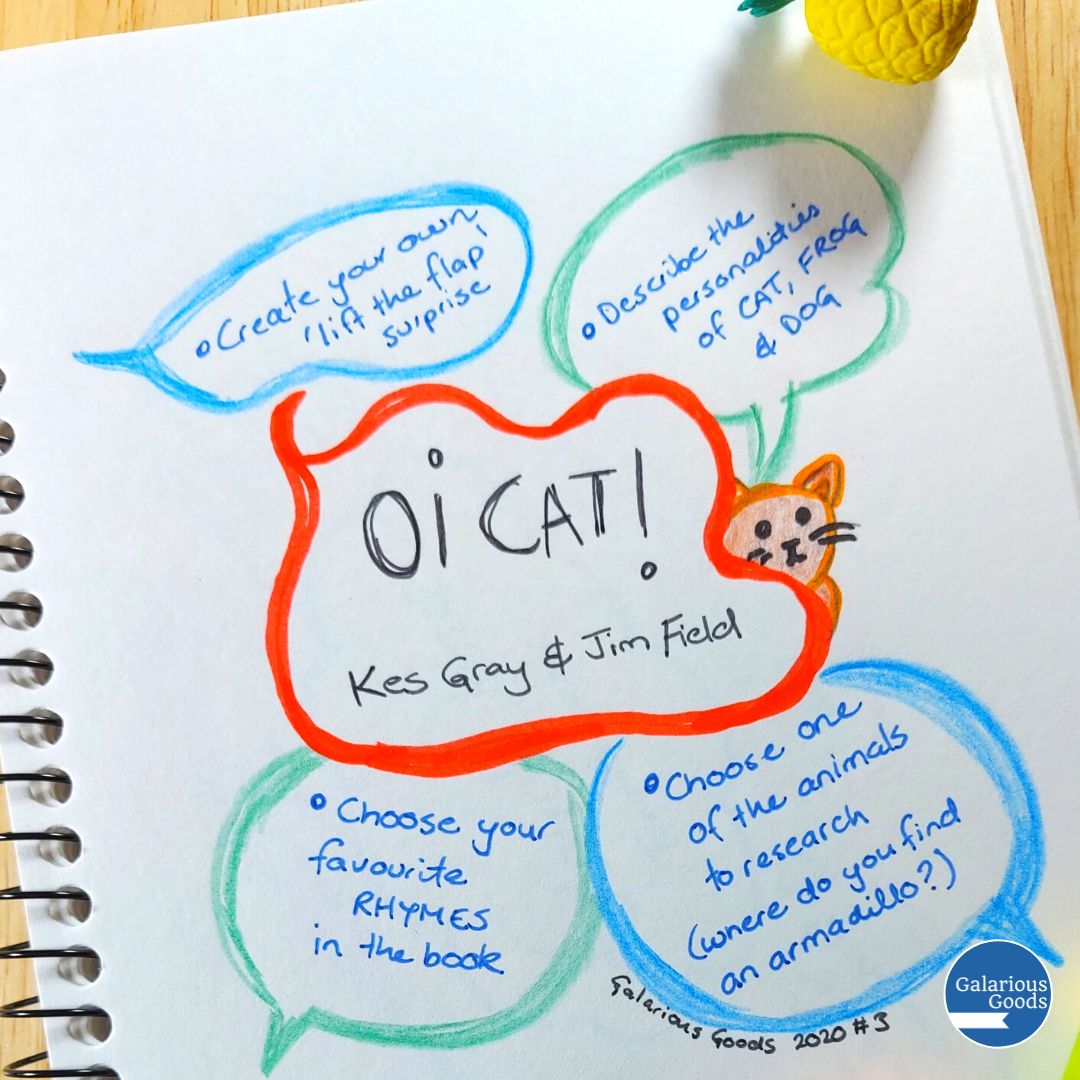 • Create your own
'lift the flap'
surprise
• Describe the
personalities
of CAT, FROG
& DOG
Oi CAT!
Kes Gray & Jim Field
• Choose your
favourite
RHYMES
in the book
• Choose one
of the animals
to research
(where do you find
an armadillo?)
Galarious Goods 2020 #3
Galarious
Goods